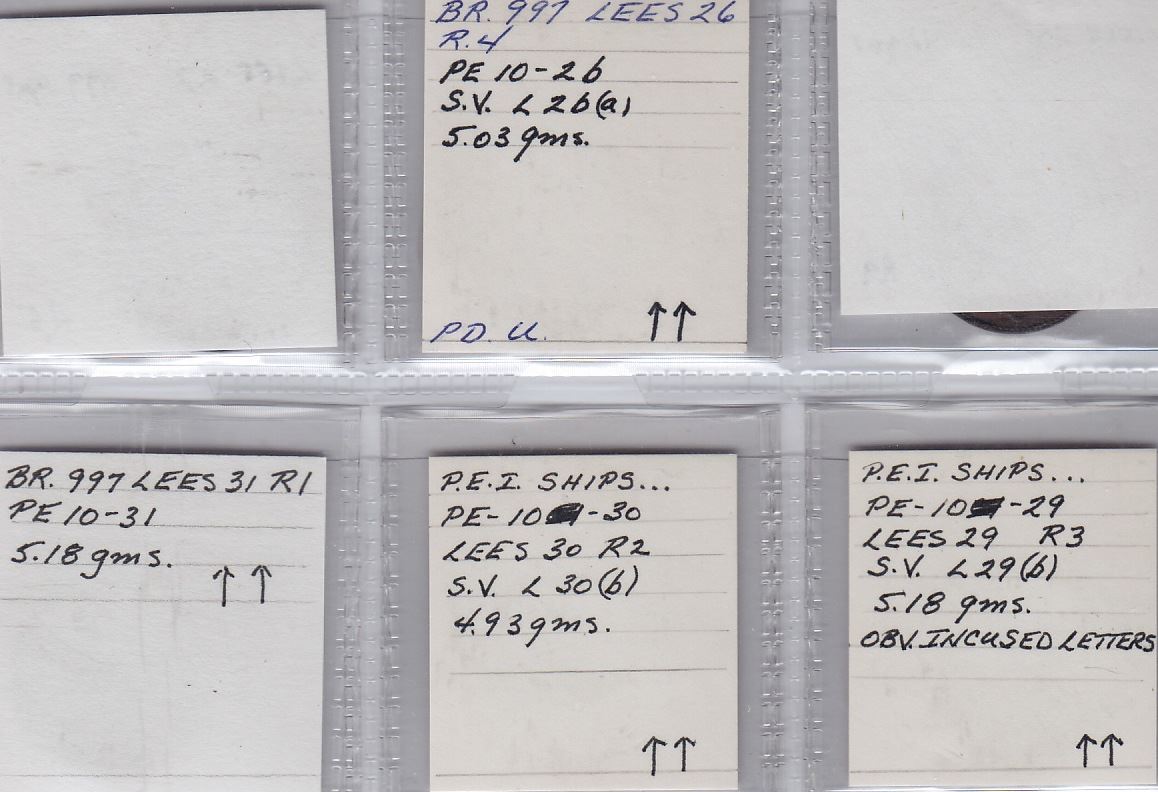 BR. 997 LEES 26
R.4
PE 10-26
S.V. L 26(a)
5.03 gms.
↑↑
PD. U.
BR. 997 LEES 31 R1
PE 10-31
5.18 gms.
↑↑
P.E.I. SHIPS...
PE-10 -30
LEES 30 R2
S.V. L 30(b)
4.93 gms.
↑↑
P.E.I. SHIPS...
PE-10 -29
LEES 29 R3
S.V. L 29(b)
5.18 gms.
OBV. INCUSED LETTERS
↑↑